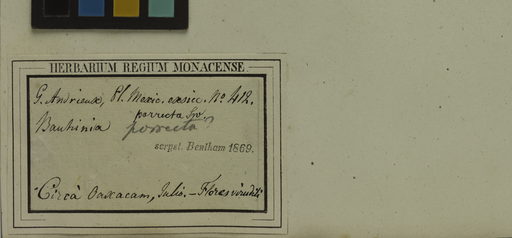 HERBARIUM REGIUM MONACENSE
G. Andrieux, Pl. Mexic. exsicc. No 412.
porrecta Sw.
Bauhinia porrecta?
scrpst. Bentham 1869.
Circà Oaxacam, Julio. — Flores viriduli